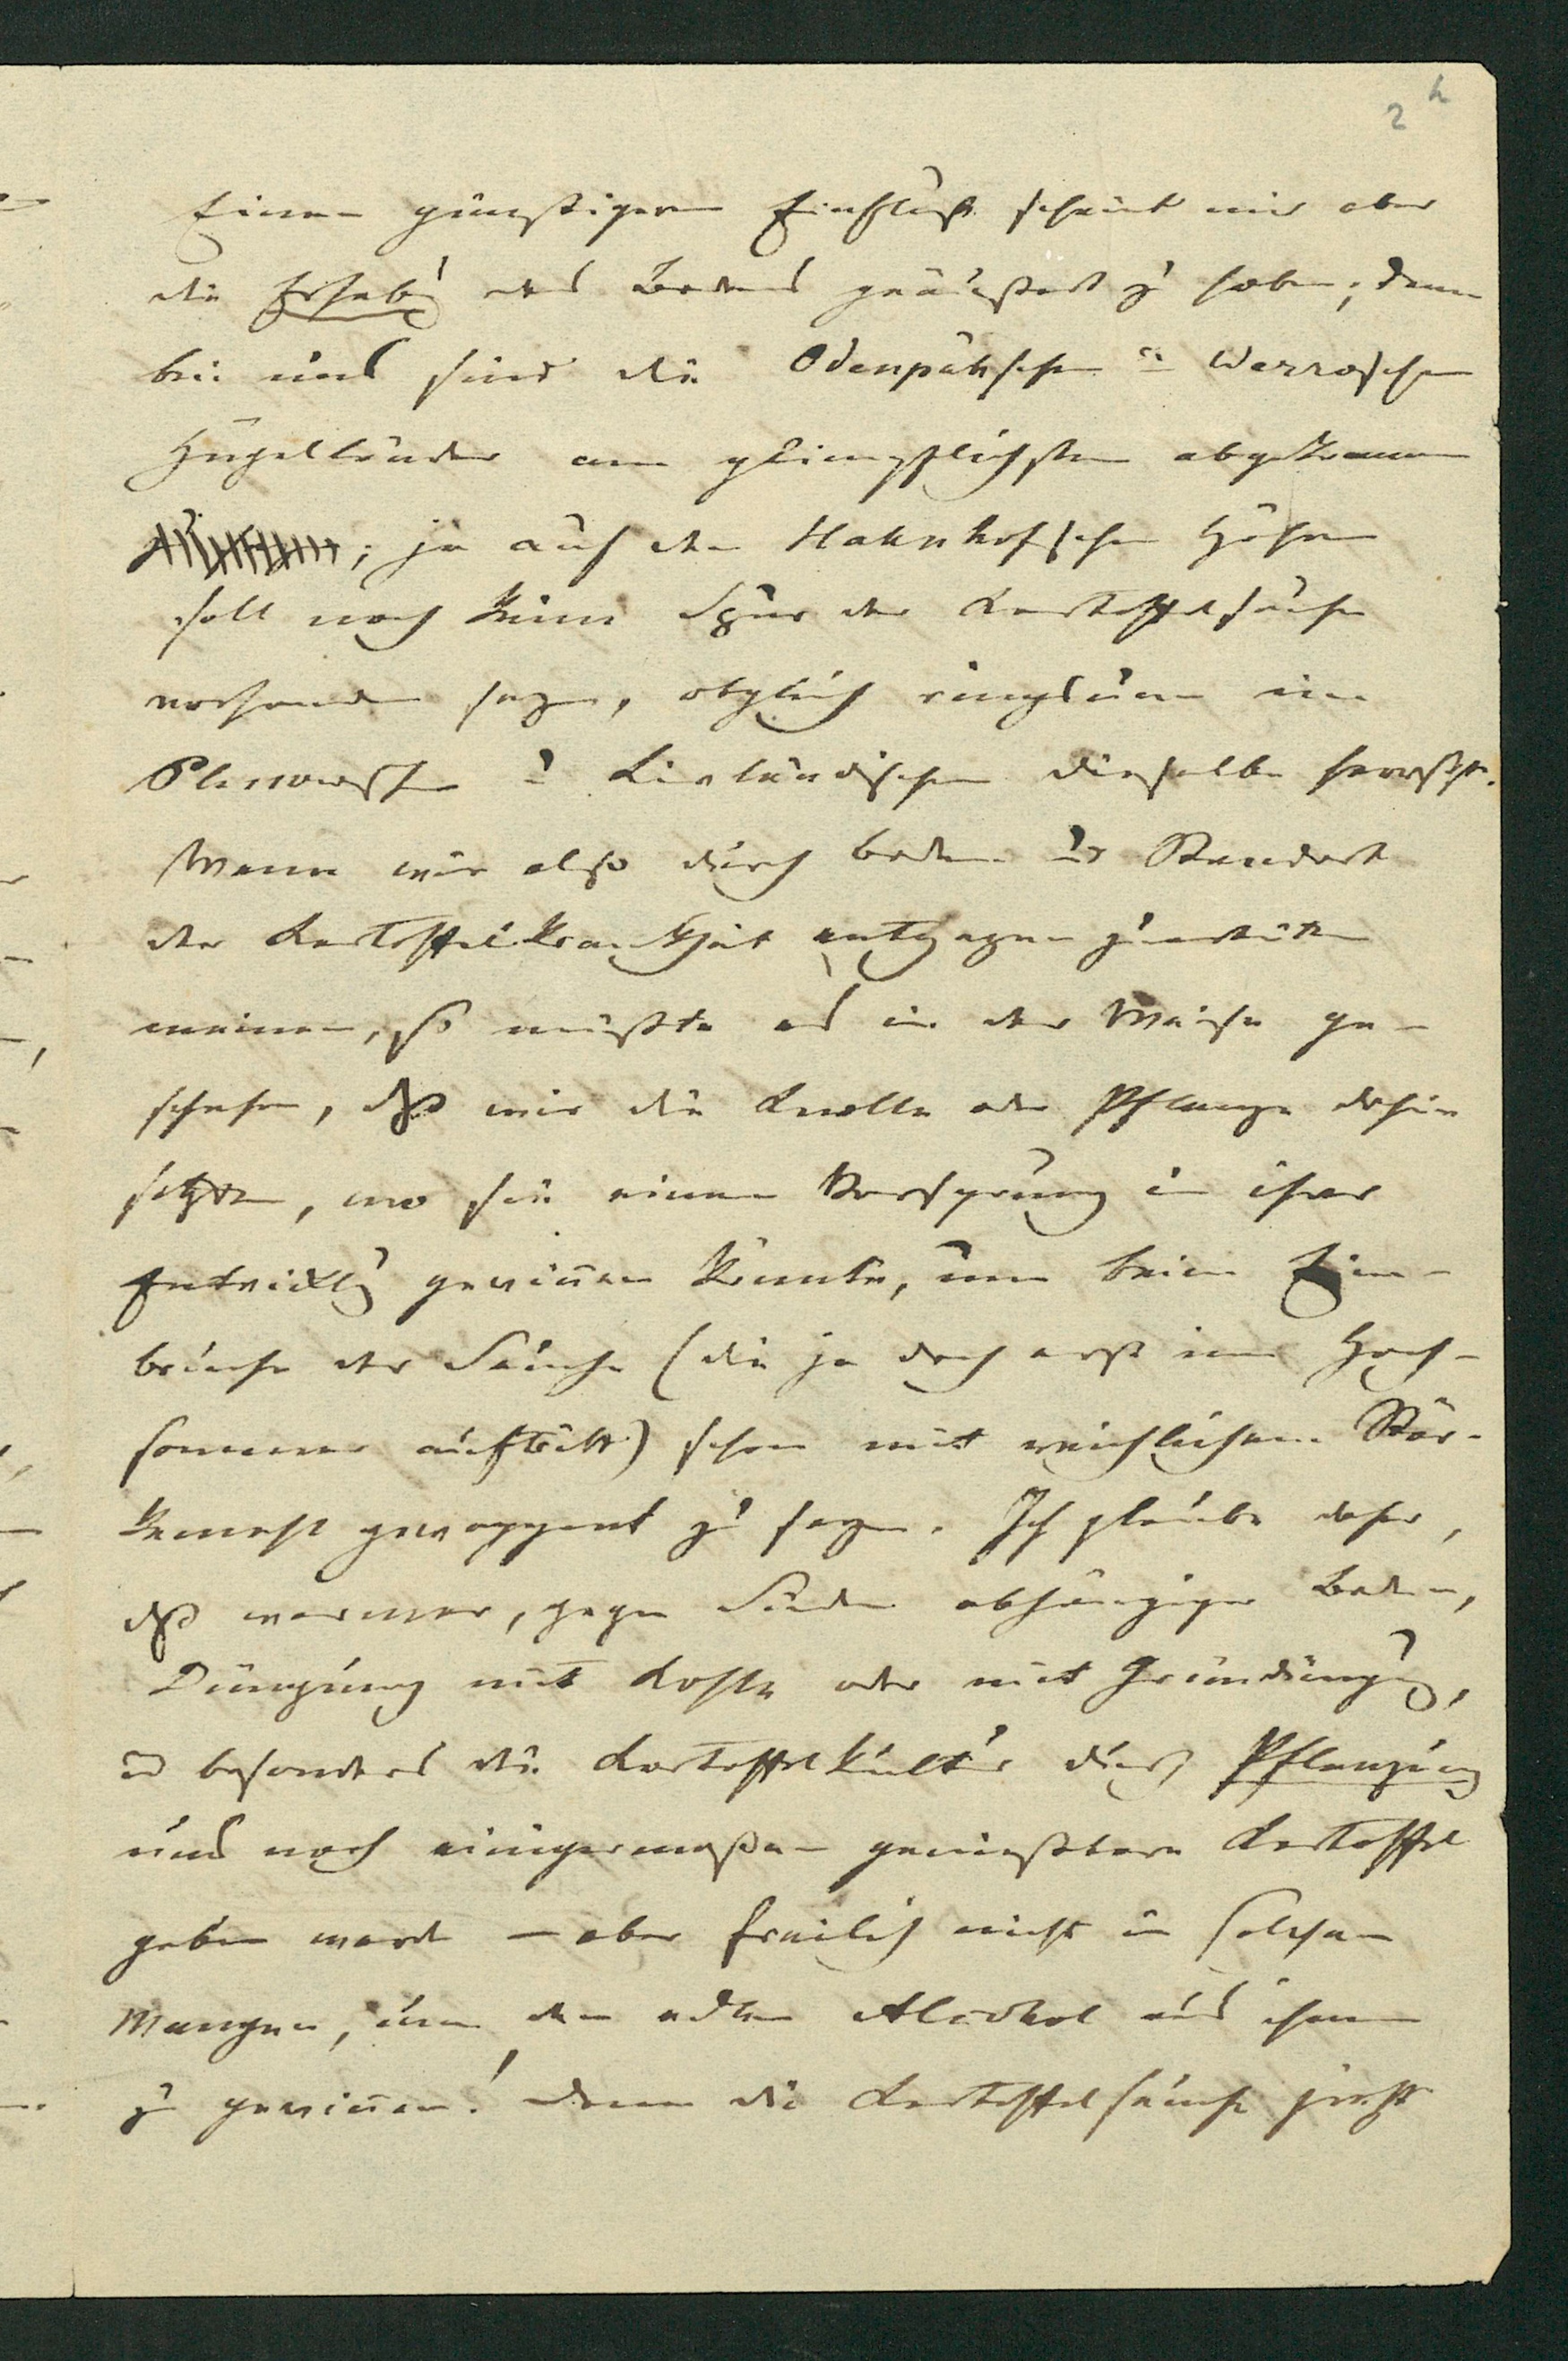 2
Einen günstigern Einfluß scheint mir aber
die Erhebg des Bodens geäußert zu haben; denn
bei uns sind die Odenpähschen u Werroschen
Hügelländer am glimpflichsten abgekommen
; ja auf den Hahnhofschen Höhen
soll noch keine Spur der Kartoffelseuche
vorhanden seyn, obgleich ringsum im
Pleskowschen u Livländischen dieselbe herrscht.
Wenn wir also durch Boden und Standort
der Kartoffelkrankheit entgegen zu arbeiten
meinen, so müßte es in der Weise ge-
schehen, dß wir die Knolle oder Pflanze dahin
setzten, wo sie einen Vorsprung in ihrer
Entwicklg gewinnen könnte, um beim Ein-
bruche der Seuche (die ja doch erst im Hoch-
sommer auftritt) schon mit reichlichem Stär-
kemehl gewappnet zu seyn. Ich glaube daher,
dß warmer, gegen Süden abhängiger Boden,
Düngung mit Kohle oder mit Gründüngg,
u besonders die Kartoffelkultur durch Pflanzung
uns noch einigermaßen genießbare Kartoffel
geben werde – aber freilich nicht in solchen
Mengen, um den edlen Alcohol aus ihnen
zu gewinnen! Denn die Kartoffelseuche